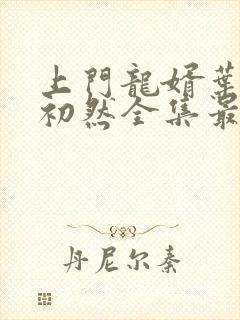 上門龍婿葉
初然全集最
丹尼尔秦